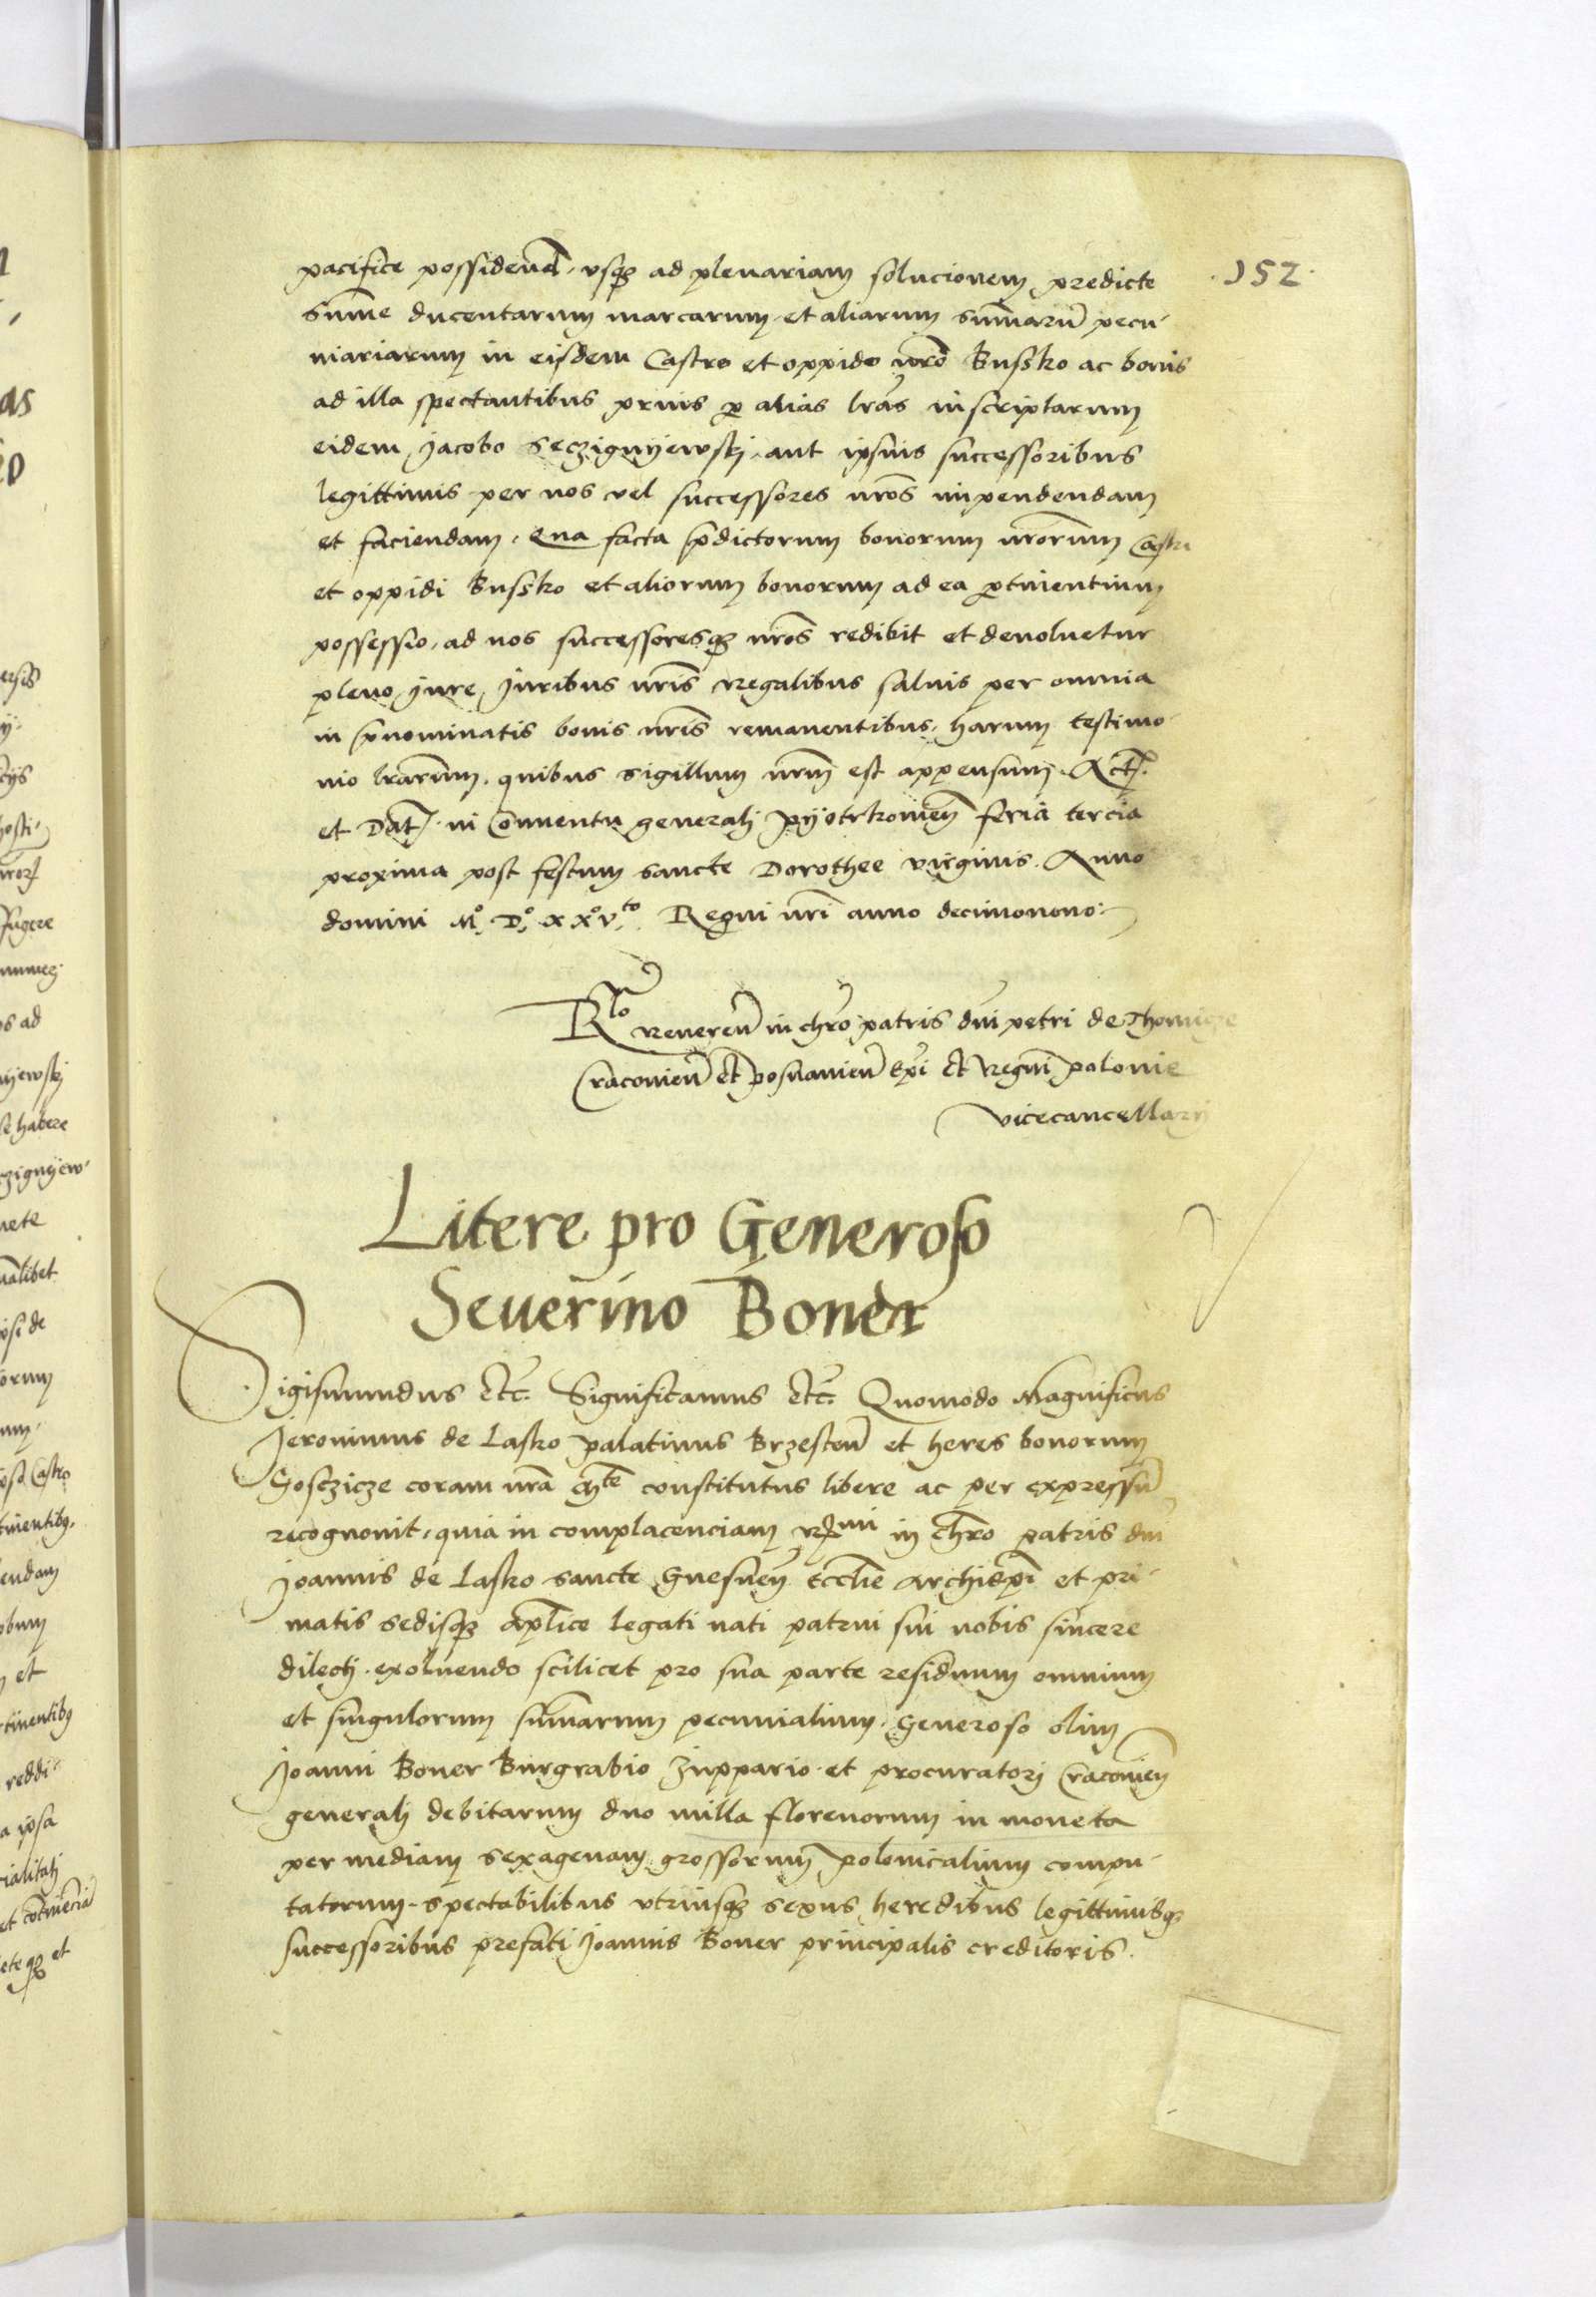 .152.
pacifice possidend. vsqz ad plenariam solucionem predicte
summe ducentarum marcarum et aliarum summarum pecu-
niariarum in eisdem Castro et oppido nro Bussko ac bonis
ad illa spectantibus prius p alias lras inscriptarum
eidem Jacobo Seczignyewskj aut ipsius successoribus
legittimis per nos vel successores nros impendendam
et faciendam. Qua facta pdictorum bonorum nrorum Castri
et oppidi Bussko et aliorum bonorum ad ea ptinentium
possessio, ad nos successoresqz nros redibit et deuoluetur
pleno jure, Juribus nris Regalibus saluis per omnia
in pnominatis bonis nris remanentibus, harum testimo-
nio lrarum. quibus sigillum nrm est appensum. Act.
et Dat. in Conuentu generalj Pyotrkouien feria tercia
proxima post festum sancte Dorothee virginis. Anno
domini Mo. Do. xxo vto. Regni nri anno decimonono:
Rlo Reueren in chro patris dni petri de Thomicze
Cracouien et posnanien Epi et Regni polonie
vicecancellarij
Litere pro Generoso
Seuerino Boner
Sigismundus etc. Significamus etc. Quomodo Magnificus
Jeronimus de Lasko palatinus Brzesten et heres bonorum
Gosczicze coram nra Mte constitutus libere ac per expressum
recognouit, quia in complacenciam Rmi in chro patris dni
Joannis de Lasko sancte Gnesnen Ecclie Archiepi et pri-
matis sedisqz aplice legati nati patrui sui nobis sincere
dilectj. exoluendo scilicet pro sua parte residuum omnium
et singulorum summarum pecunialium. Generoso olim
Joanni Boner Burgrabio Zuppario et procuratorj Cracouien
generalj debitarum duo milla florenorum in moneta
per mediam sexagenam grossorum polonicalium compu-
tatorum. spectabilibus vtriusqz sexus heredibus legittimisqz
successoribus prefati Joannis Boner principalis creditoris.